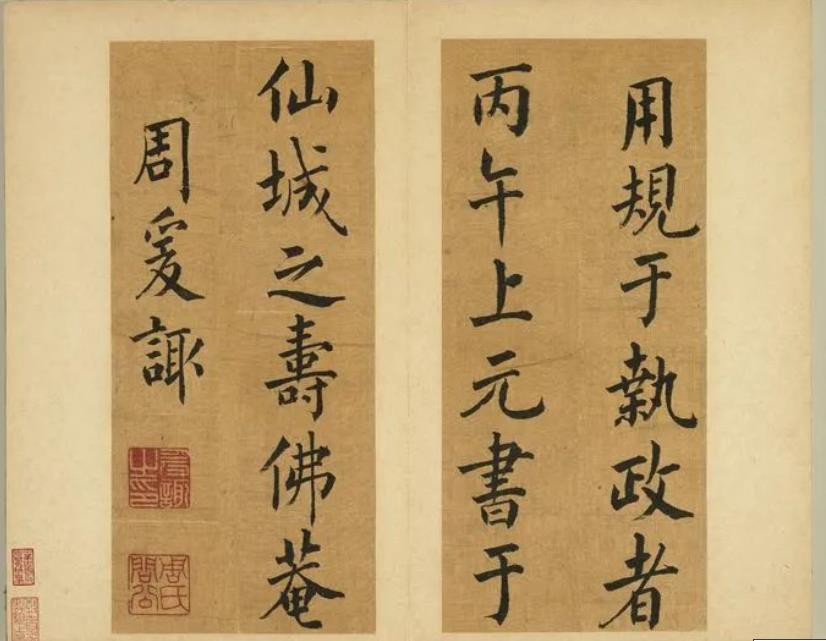 用規于執政者
丙午上元書于
仙城之壽佛菴
周爰諏